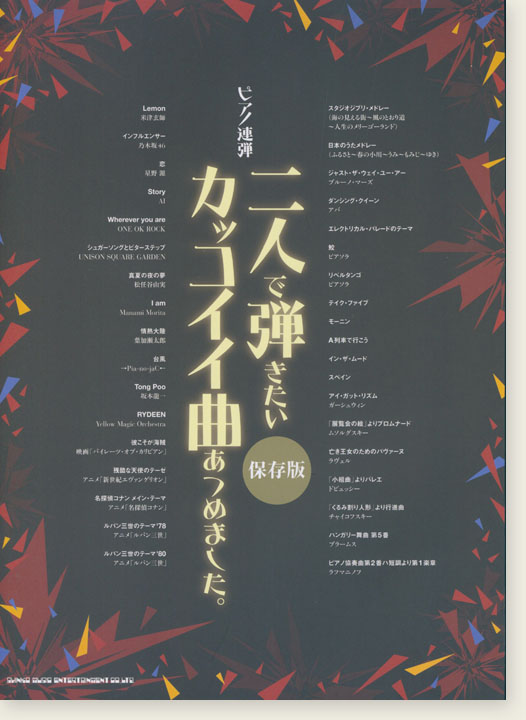 ピアノ連弾
二人で弾きたい
カッコイイ曲あつめました。
保存版
Lemon
米津玄師
インフルエンサー
乃木坂46
恋
星野 源
Story
AI
Wherever you are
ONE OK ROCK
シュガーソングとビターステップ
UNISON SQUARE GARDEN
真夏の夜の夢
松任谷由実
I am
Manami Morita
情熱大陸
葉加瀬太郎
台風
→Pia-no-jaC←
Tong Poo
坂本龍一
RYDEEN
Yellow Magic Orchestra
彼こそが海賊
映画「パイレーツ・オブ・カリビアン」
残酷な天使のテーゼ
アニメ「新世紀エヴァンゲリオン」
名探偵コナン メイン・テーマ
アニメ「名探偵コナン」
ルパン三世のテーマ'78
アニメ「ルパン三世」
ルパン三世のテーマ'80
アニメ「ルパン三世」
スタジオジブリ・メドレー
(海の見える街〜風のとおり道
〜人生のメリーゴーランド)
日本のうたメドレー
(ふるさと〜春の小川〜うみ〜もみじ〜ゆき)
ジャスト・ザ・ウェイ・ユー・アー
ブルーノ・マーズ
ダンシング・クイーン
アバ
エレクトリカル・パレードのテーマ
鮫
ピアソラ
リベルタンゴ
ピアソラ
テイク・ファイブ
モーニン
A列車で行こう
イン・ザ・ムード
スペイン
アイ・ガット・リズム
ガーシュウィン
「展覧会の絵」よりプロムナード
ムソルグスキー
亡き王女のためのパヴァーヌ
ラヴェル
「小組曲」よりバレエ
ドビュッシー
「くるみ割り人形」より行進曲
チャイコフスキー
ハンガリー舞曲 第5番
ブラームス
ピアノ協奏曲第2番ハ短調より第1楽章
ラフマニノフ
SHINKO MUSIC ENTERTAINMENT CO.,LTD.